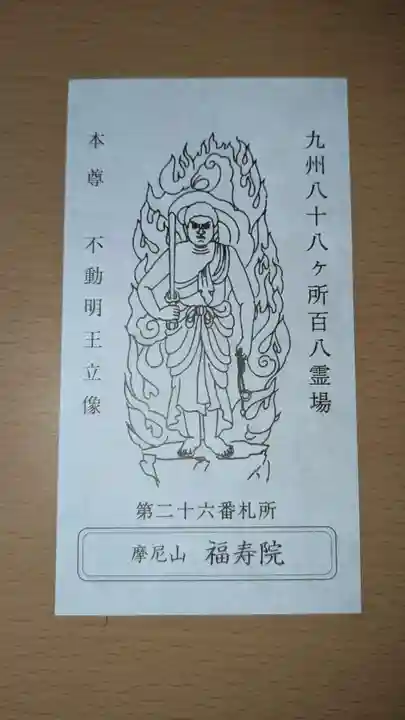 九州八十八ヶ所百八霊場
本尊 不動明王立像
第二十六番札所
摩尼山 福寿院